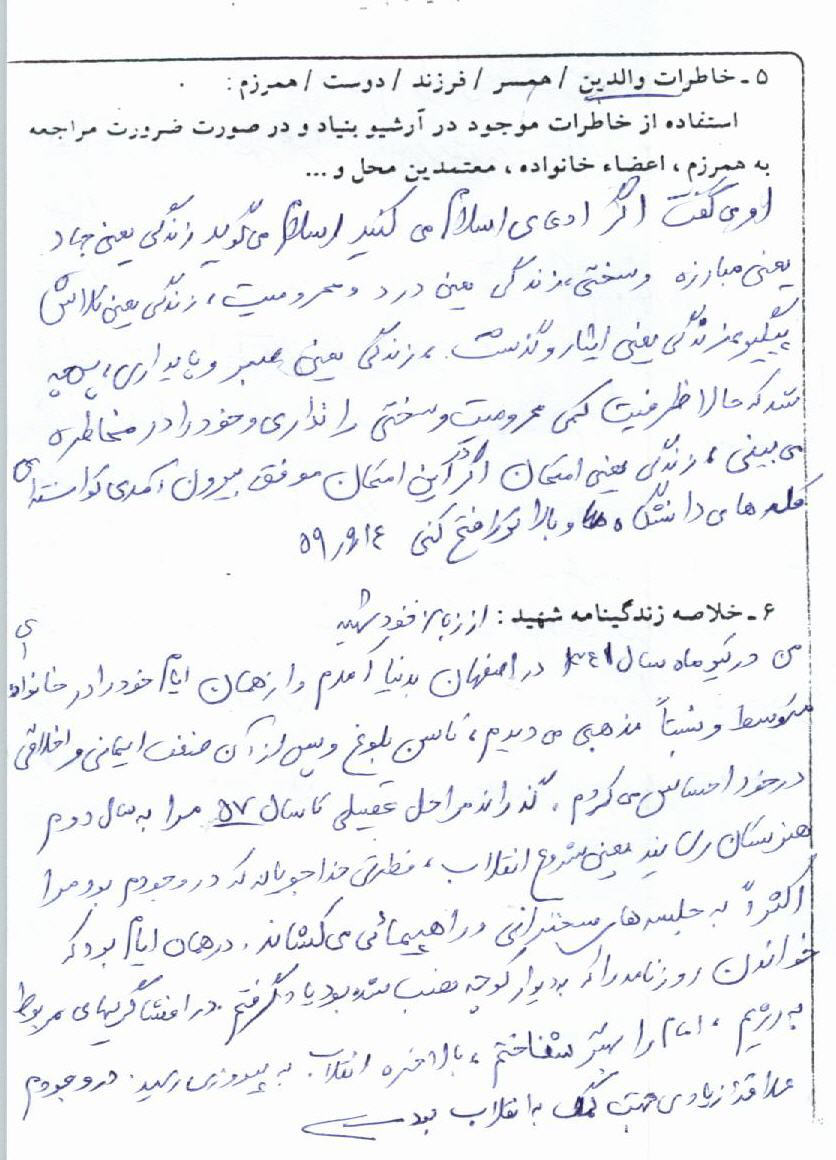 ۵ ـ خاطرات والدین / همسر / فرزند / دوست / همرزم :
استفاده از خاطرات موجود در آرشیو بنیاد و در صورت ضرورت مراجعه
به همرزم ، اعضاء خانواده ، معتمدین محل و ...
او می گفت اگر ادعای اسلام می کنید اسلام می گوید زندگی یعنی جهاد
یعنی مبارزه و سختی، زندگی یعنی درد و محرومیت، زندگی یعنی تلاش
پیگیر، زندگی یعنی ایثار و گذشت، زندگی یعنی صبر و پایداری، پس چه
شد که حالا ظرفیت کمی محرومیت و سختی را نداری و خود را در مخاطره
می بینی، زندگی یعنی امتحان اگر در این امتحان موفق بیرون آمدی توانسته ای
قله های دانشگاه ها و بالاتر را فتح کنی ۵۹٫۹٫۱۴
۶ ـ خلاصه زندگینامه شهید : از زبان خود شهید
من در تیر ماه سال ۱۳۴۱ در اصفهان بدنیا آمدم و از همان ایام خود را در خانواده ای
متوسط و نسبتاً مذهبی می دیدم، تا سن بلوغ و پس از آن ضعف ایمانی و اخلاقی
در خود احساس می کردم. گذراند مراحل تحصیلی تا سال ۵۷ مرا به سال دوم
هنرستان رسانید یعنی شروع انقلاب، فطرت خداجویانه که در وجودم بود مرا
اکثراً به جلسه های سخنرانی و راهپیمائی می کشاند. در همان ایام بود که
خواندن روزنامه را که به دیوار کوچه نصب شده بود یاد گرفتم. در افشاگریهای مربوط
به رژیم، امام را بهتر شناختم، بالاخره انقلاب به پیروزی رسید. در وجودم
علاقه زیادی جهت کمک به انقلاب بود